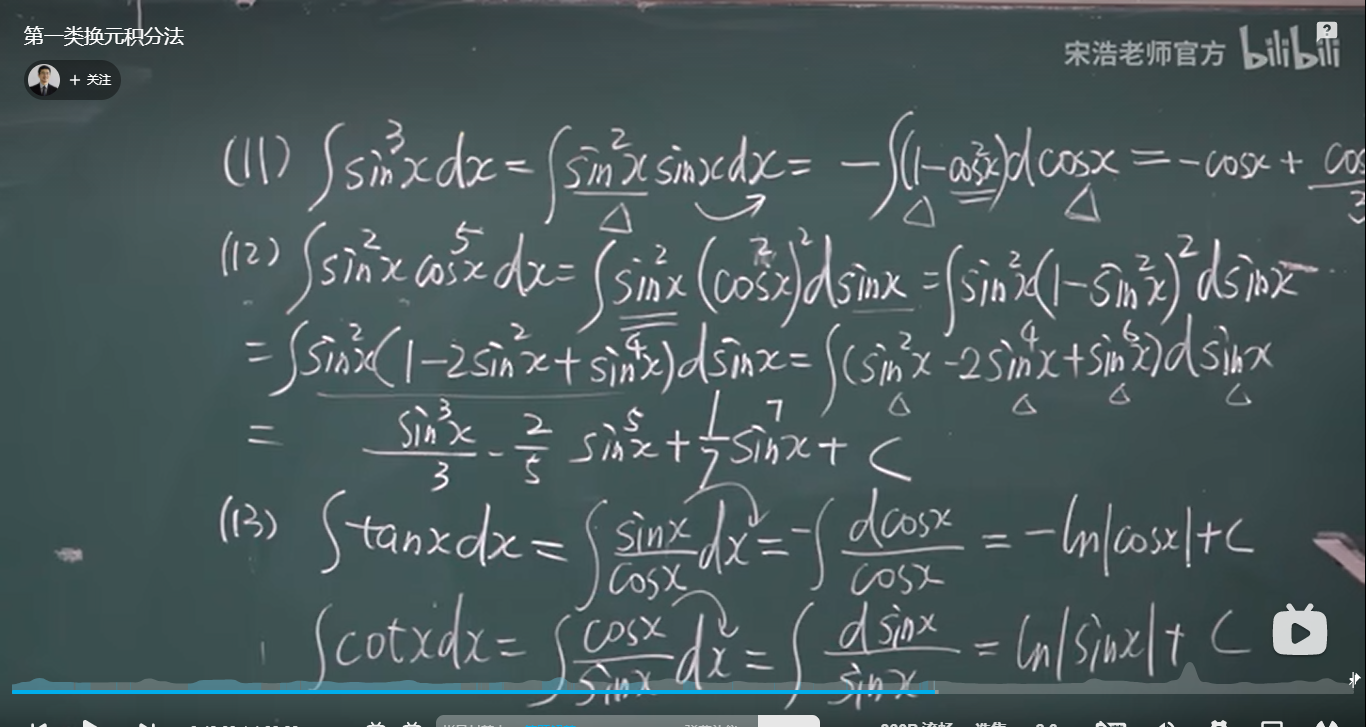 第一类换元积分法
宋浩老师官方 bilibili
+ 关注
(11) ∫sin³x dx = ∫sin²x sinx dx = -∫(1-cos²x)d cosx = -cosx +
(12) ∫sin²x cos⁵x dx = ∫sin²x (cos²x)² d sinx = ∫sin²x(1-sin²x)² d sinx
= ∫sin²x(1-2sin²x+sin⁴x)d sinx = ∫(sin²x -2sin⁴x+sin⁶x)d sinx
= sin³x/3 - 2/5 sin⁵x + 1/7 sin⁷x + C
(13) ∫tanx dx = ∫ sinx/cosx dx = -∫ dcosx/cosx = -ln|cosx|+C
∫cotx dx = ∫ cosx/sinx dx = ∫ d sinx/sinx = ln|sinx|+ C